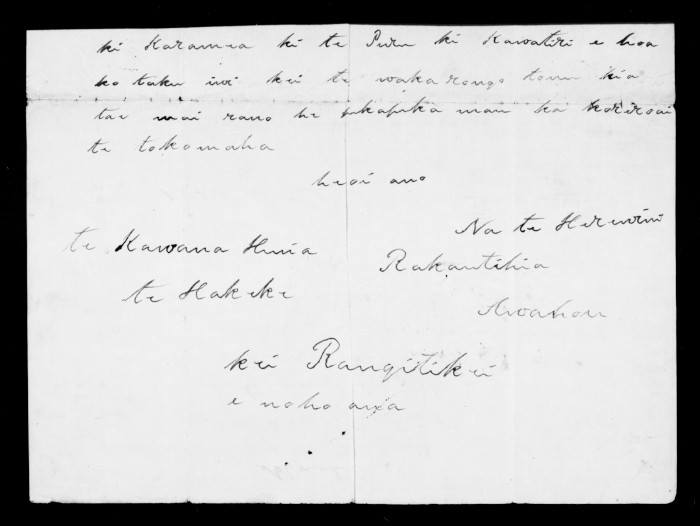 ki Karamea ki te Puru ki Kawatiri e hoa
ko taku iwi kei te wakarongo tonu kia
tae mai rano he pukapuka mau ka koreroai
te tokomaha
heoi ano
Na te Herewini
te Kawana Hunia
Rakautihia
te Hakeke
Awahou
kei Rangitikei
e noho ana